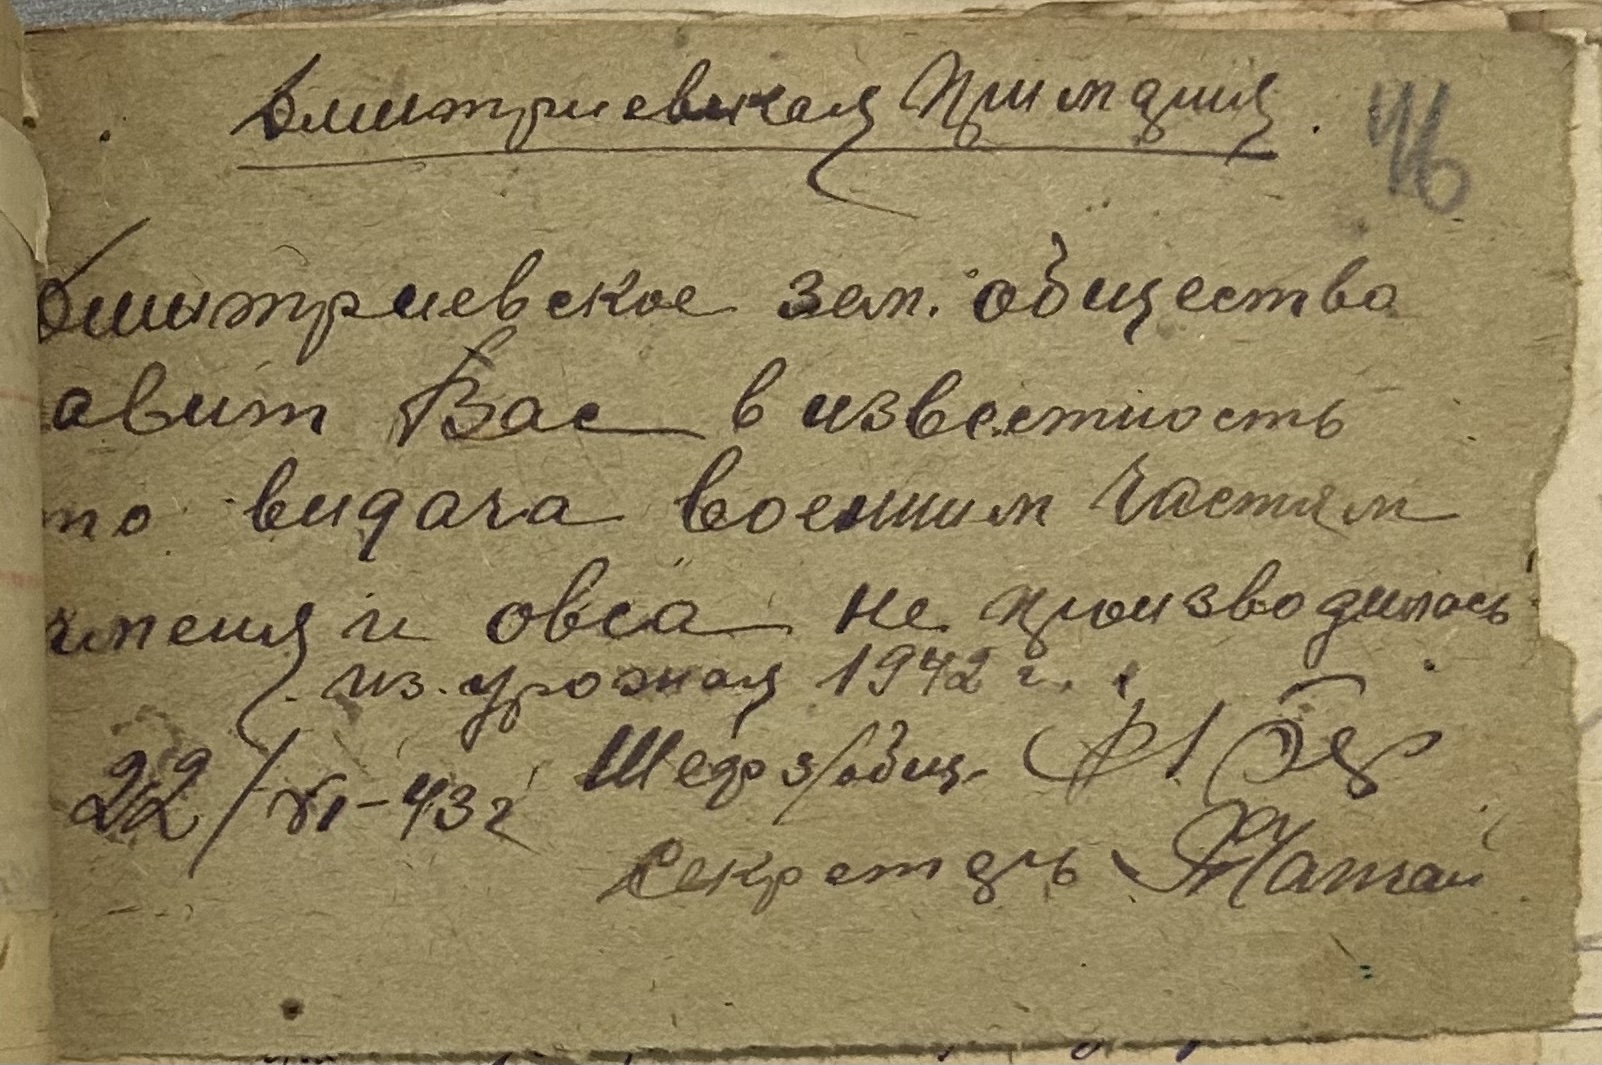 Дмитриевская
46
Дмитриевское зем. общество
авит Вас в известность
то видача военним частям
чменя и овса не производилась
из урожая 1942 г.
22/VI-43 г Шеф з/общ.
Секретарь